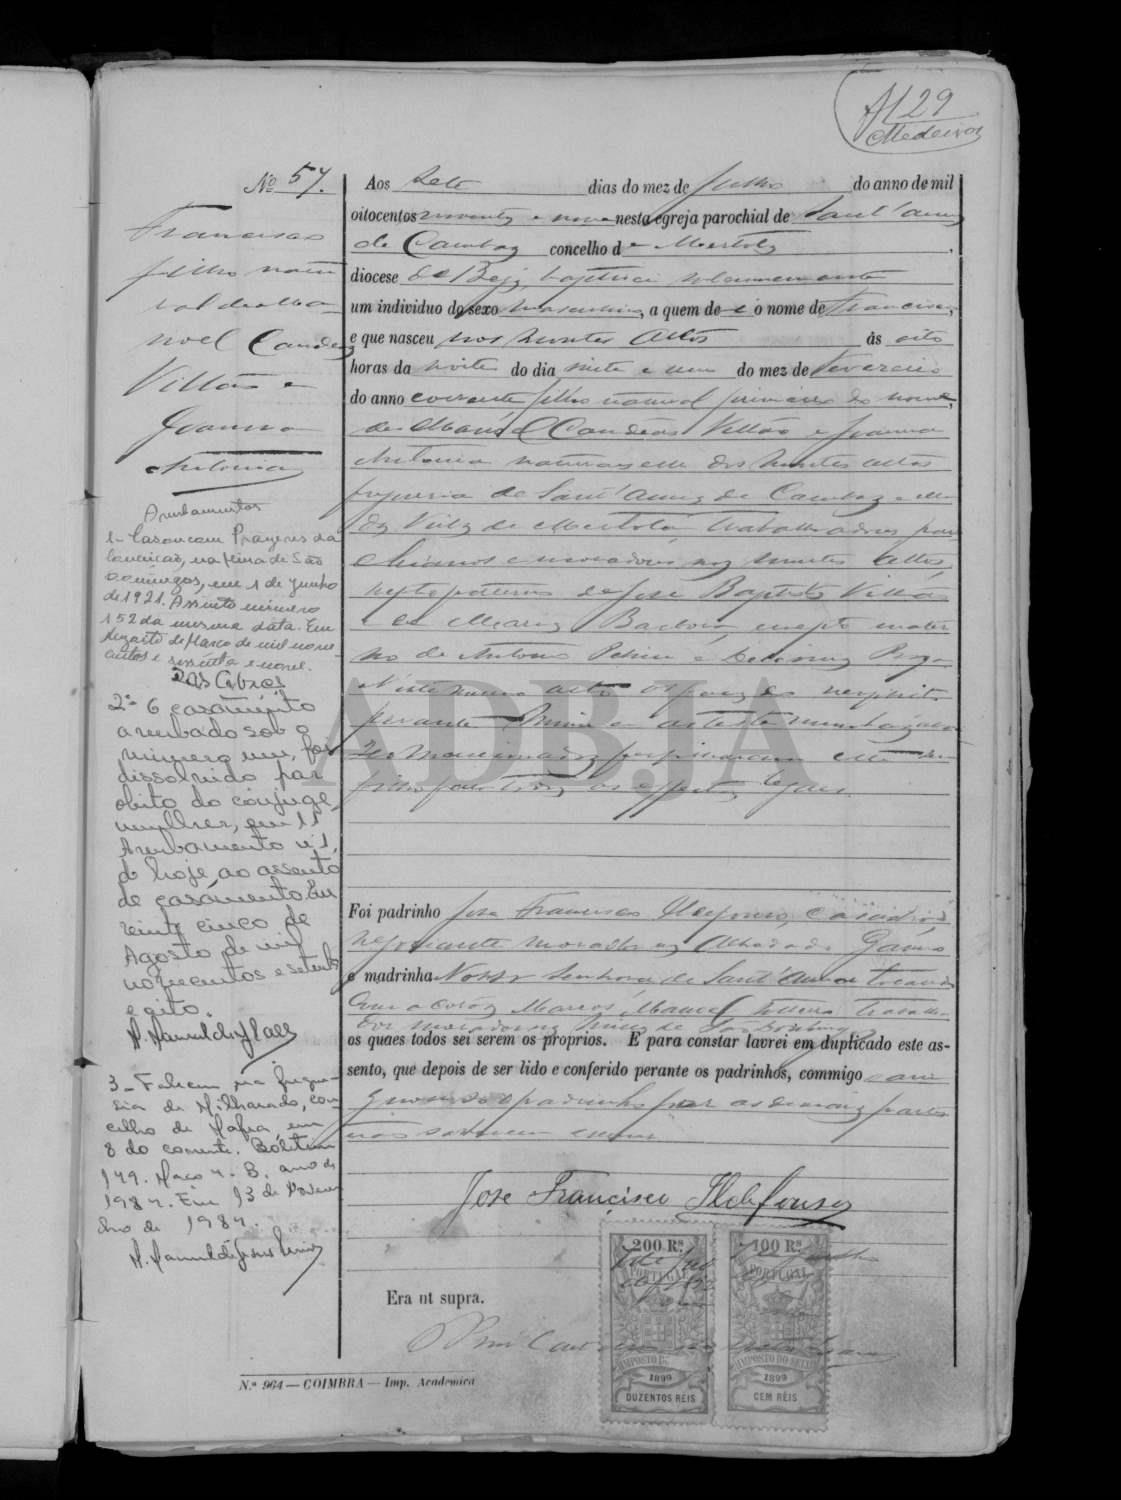 A 129
Medeiros
Nº 57.
Francisco
filho natu
ral de Ma
noel Candeas
Villão e
Joanna
Antonia
Averbamentos
1 - Casou com Prazeres da
Conceição, na Mina de São
Domingos, em 1 de Junho
de 1921. Assento número
152 da mesma data. Em
de Março de mil nove
centos e sessenta e nove.
2º O casamento
averbado sob o
número um, foi
dissolvido por
óbito do cônjuge
mulher, em 11
Averbamento nº 1,
de hoje, ao assento
de casamento. Em
vinte cinco de
Agosto de mil
novecentos e setenta
e oito.
3 - Faleceu na fregue-
sia de Milharado, con-
celho de Mafra, em
8 do corrente. Boletim
149. Maço n. 3. ano de
1984. Em 13 de Novem
bro de 1984.
Aos sete dias do mez de Julho do anno de mil
oitocentos noventa e nove nesta egreja parochial de Sant'anna
de Cambas concelho de Mertola,
diocese de Beja, baptisei solemnemente
um individuo do sexo masculino, a quem dei o nome de Francisco,
e que nasceu nos Montes Altos ás oito
horas da noite do dia vinte e um do mez de Fevereiro
do anno corrente filho natural primeiro do nome,
de Manoel Candeas Villão e Joanna
Antonia naturaes elle dos Montes Altos
freguesia de Sant'Anna de Cambas e ella
da Villa de Mertola trabalhadores paro
chianos e moradores nos Montes Altos,
neto paterno de José Baptista Villão
e de Maria Barbara, e neto mater
no de Antonio
N'este mesmo acto os paes do neophito
perante mim e as testemunhas
mencionadas perfilharam este seu
filho para todos os effeitos legaes.
Foi padrinho José Francisco Ildefonso, casado,
negociante morador na
e madrinha Nossa Senhora de Sant'Anna tocando
com a corôa Marcos Manoel trabalha
dor morador na Mina de São Domingos
os quaes todos sei serem os proprios. E para constar lavrei em duplicado este as-
sento, que depois de ser lido e conferido perante os padrinhos, commigo
o padrinho por as demais partes
não saberem escrever
José Francisco Ildefonso
200 Rs.
PORTUGAL
IMPOSTO DO
1899
DUZENTOS RÉIS
100 Rs.
PORTUGAL
IMPOSTO DO SELLO
1899
CEM RÉIS
Era ut supra.
N.º 964 — COIMBRA — Imp. Academica
ADBJA